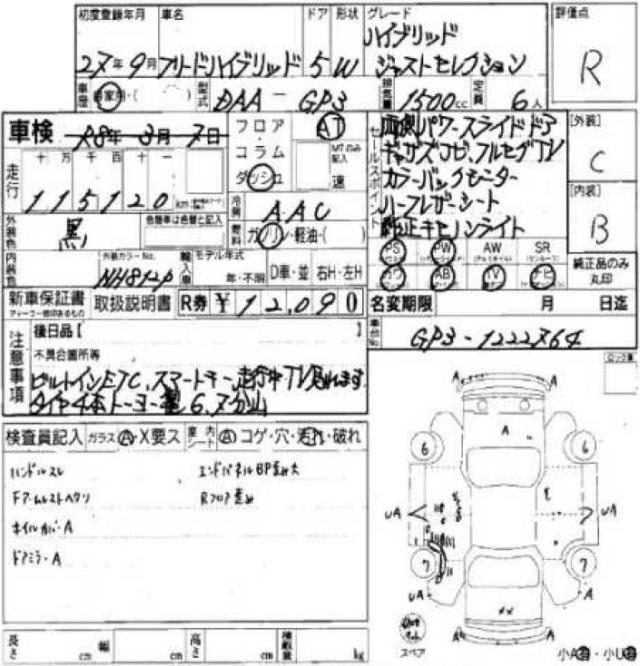 初度登録年月 車名 ドア 形状 グレード 評価点
ハイブリッド
27年9月 フリードハイブリッド 5 W ジャストセレクション R
車歴 自家用・( ) 型式 DAA - GP3 排気量 1500cc 定員 6人
車検 R8年3月7日 フロア AT
コラム MTのみ記入
ダッシュ 速
セールスポイント
両側パワースライドドア
ギャザズナビ、フルセグTV
カラーバックモニター
ハーフレザーシート
純正キセノンライト
[外装]
C
[内装]
B
走行 十万千百十
115120km
冷房 AAC
外装色 黒 色替車は色替と記入
燃料 ガソリン・軽油・( )
PS PW AW SR
カワ AB TV ナビ
純正品のみ丸印
内装色 外装カラーNo. NH812P 輸入車 モデル年式 年・不明 D車・並 右H・左H
新車保証書 取扱説明書 R券 ¥12,090
名変期限 月 日迄
車台No. GP3-1222764
注意事項
後日品[ ]
不具合箇所等
ビルトインETC、スマートキー、走行中TV見れます。
タイヤ4本トーヨー製6、7分山
検査員記入 ガラス A・X要ス 室内シート A コゲ・穴・汚れ・破れ
ハンドルスレ エンドパネルBP歪み大
Fアームレストヘタリ Rフロア歪み
ホイルカバーA
ドアミラーA
A
A
6 6
UA UA
7 7
UA A
××
A A
スペア
小A・小U
長さ cm 幅 cm 高さ cm 積載量 kg